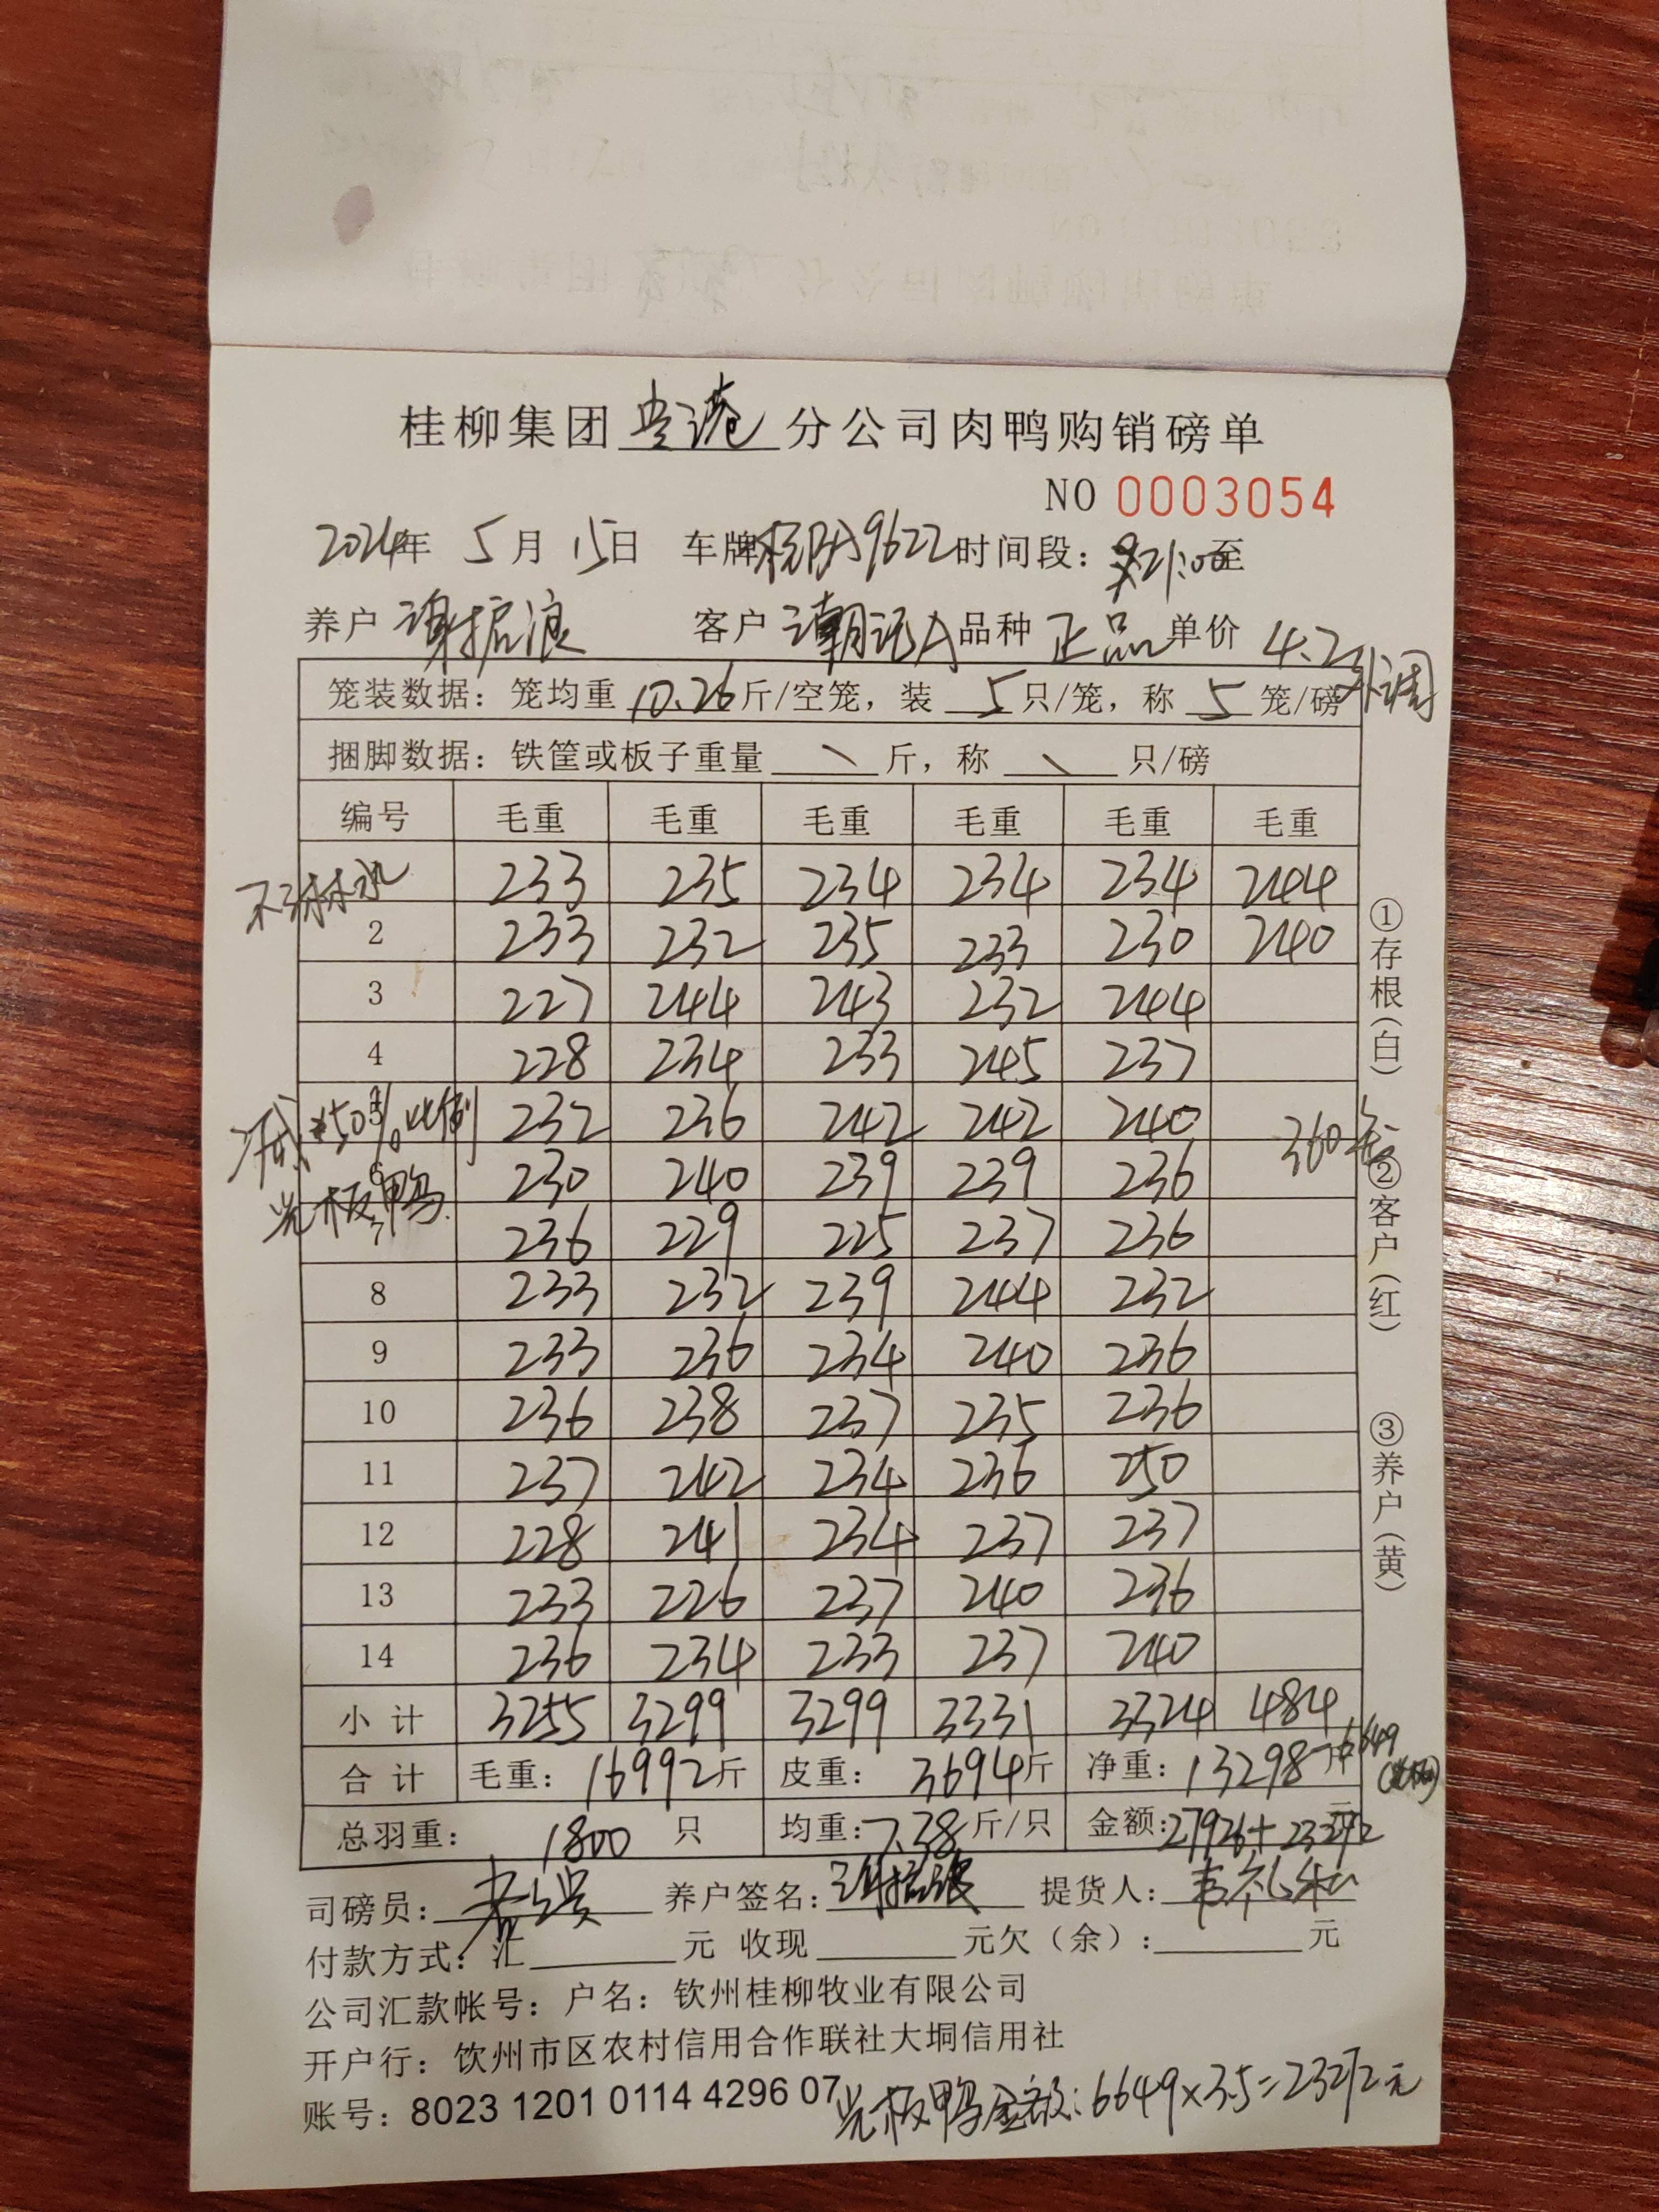 桂柳集团贵港分公司肉鸭购销磅单
NO 0003054
2024年 5月 15日 车牌 9622 时间段：21:00至
养户 谢振浪 客户 潮记A 品种 正品 单价 4.2 外调
笼装数据：笼均重 10.26 斤/空笼，装 5 只/笼，称 5 笼/磅
捆脚数据：铁筐或板子重量 \ 斤，称 \ 只/磅
编号 毛重 毛重 毛重 毛重 毛重 毛重
不淋水 233 235 234 234 234 244
2 233 232 235 233 230 240
3 227 244 243 232 244
4 228 234 233 245 237
50%比例 232 236 242 242 240 360
6 230 240 239 239 236
光板鸭 7 236 229 225 237 236
8 233 232 239 244 232
9 233 236 234 240 236
10 236 238 237 235 236
11 237 242 234 236 250
12 228 241 234 237 237
13 233 226 237 240 236
14 236 234 233 237 240
小计 3255 3299 3299 3331 3324 484
合计 毛重：16992斤 皮重：3694斤 净重：13298斤 6649
总羽重：1800 只 均重：7.38 斤/只 金额：27926+23272元
司磅员： 养户签名：谢振浪 提货人：
付款方式：汇 元 收现 元欠（余）： 元
公司汇款帐号：户名：钦州桂柳牧业有限公司
开户行：钦州市区农村信用合作联社大垌信用社
账号：8023 1201 0114 4296 07
光板鸭金额：6649×3.5=23272元
①存根（白）
②客户（红）
③养户（黄）